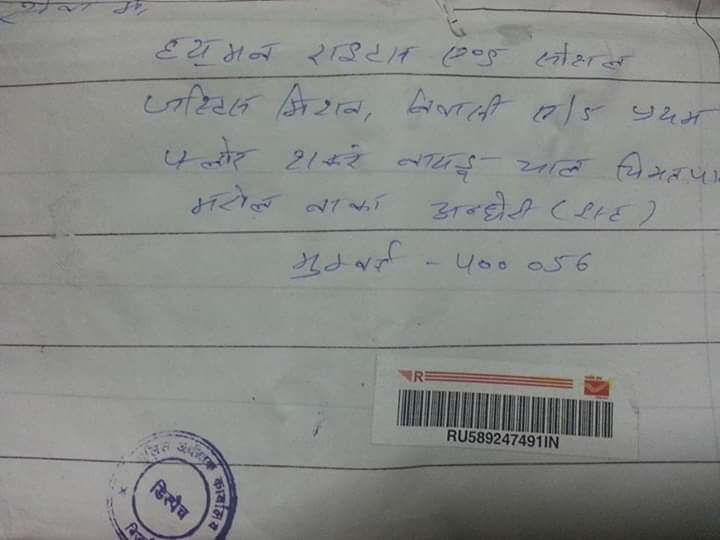 सेवा में,
ह्युमन राइटस एण्ड सोशल
जस्टिस मिशन, निवासी ए/5 प्रथम
फ्लोर शंकर नायडू चाल
मरोल नाका अन्धेरी (ईस्ट)
मुम्बई - 400 056
R
RU589247491IN
पुलिस अधीक्षक कार्यालय
डिस्पैच